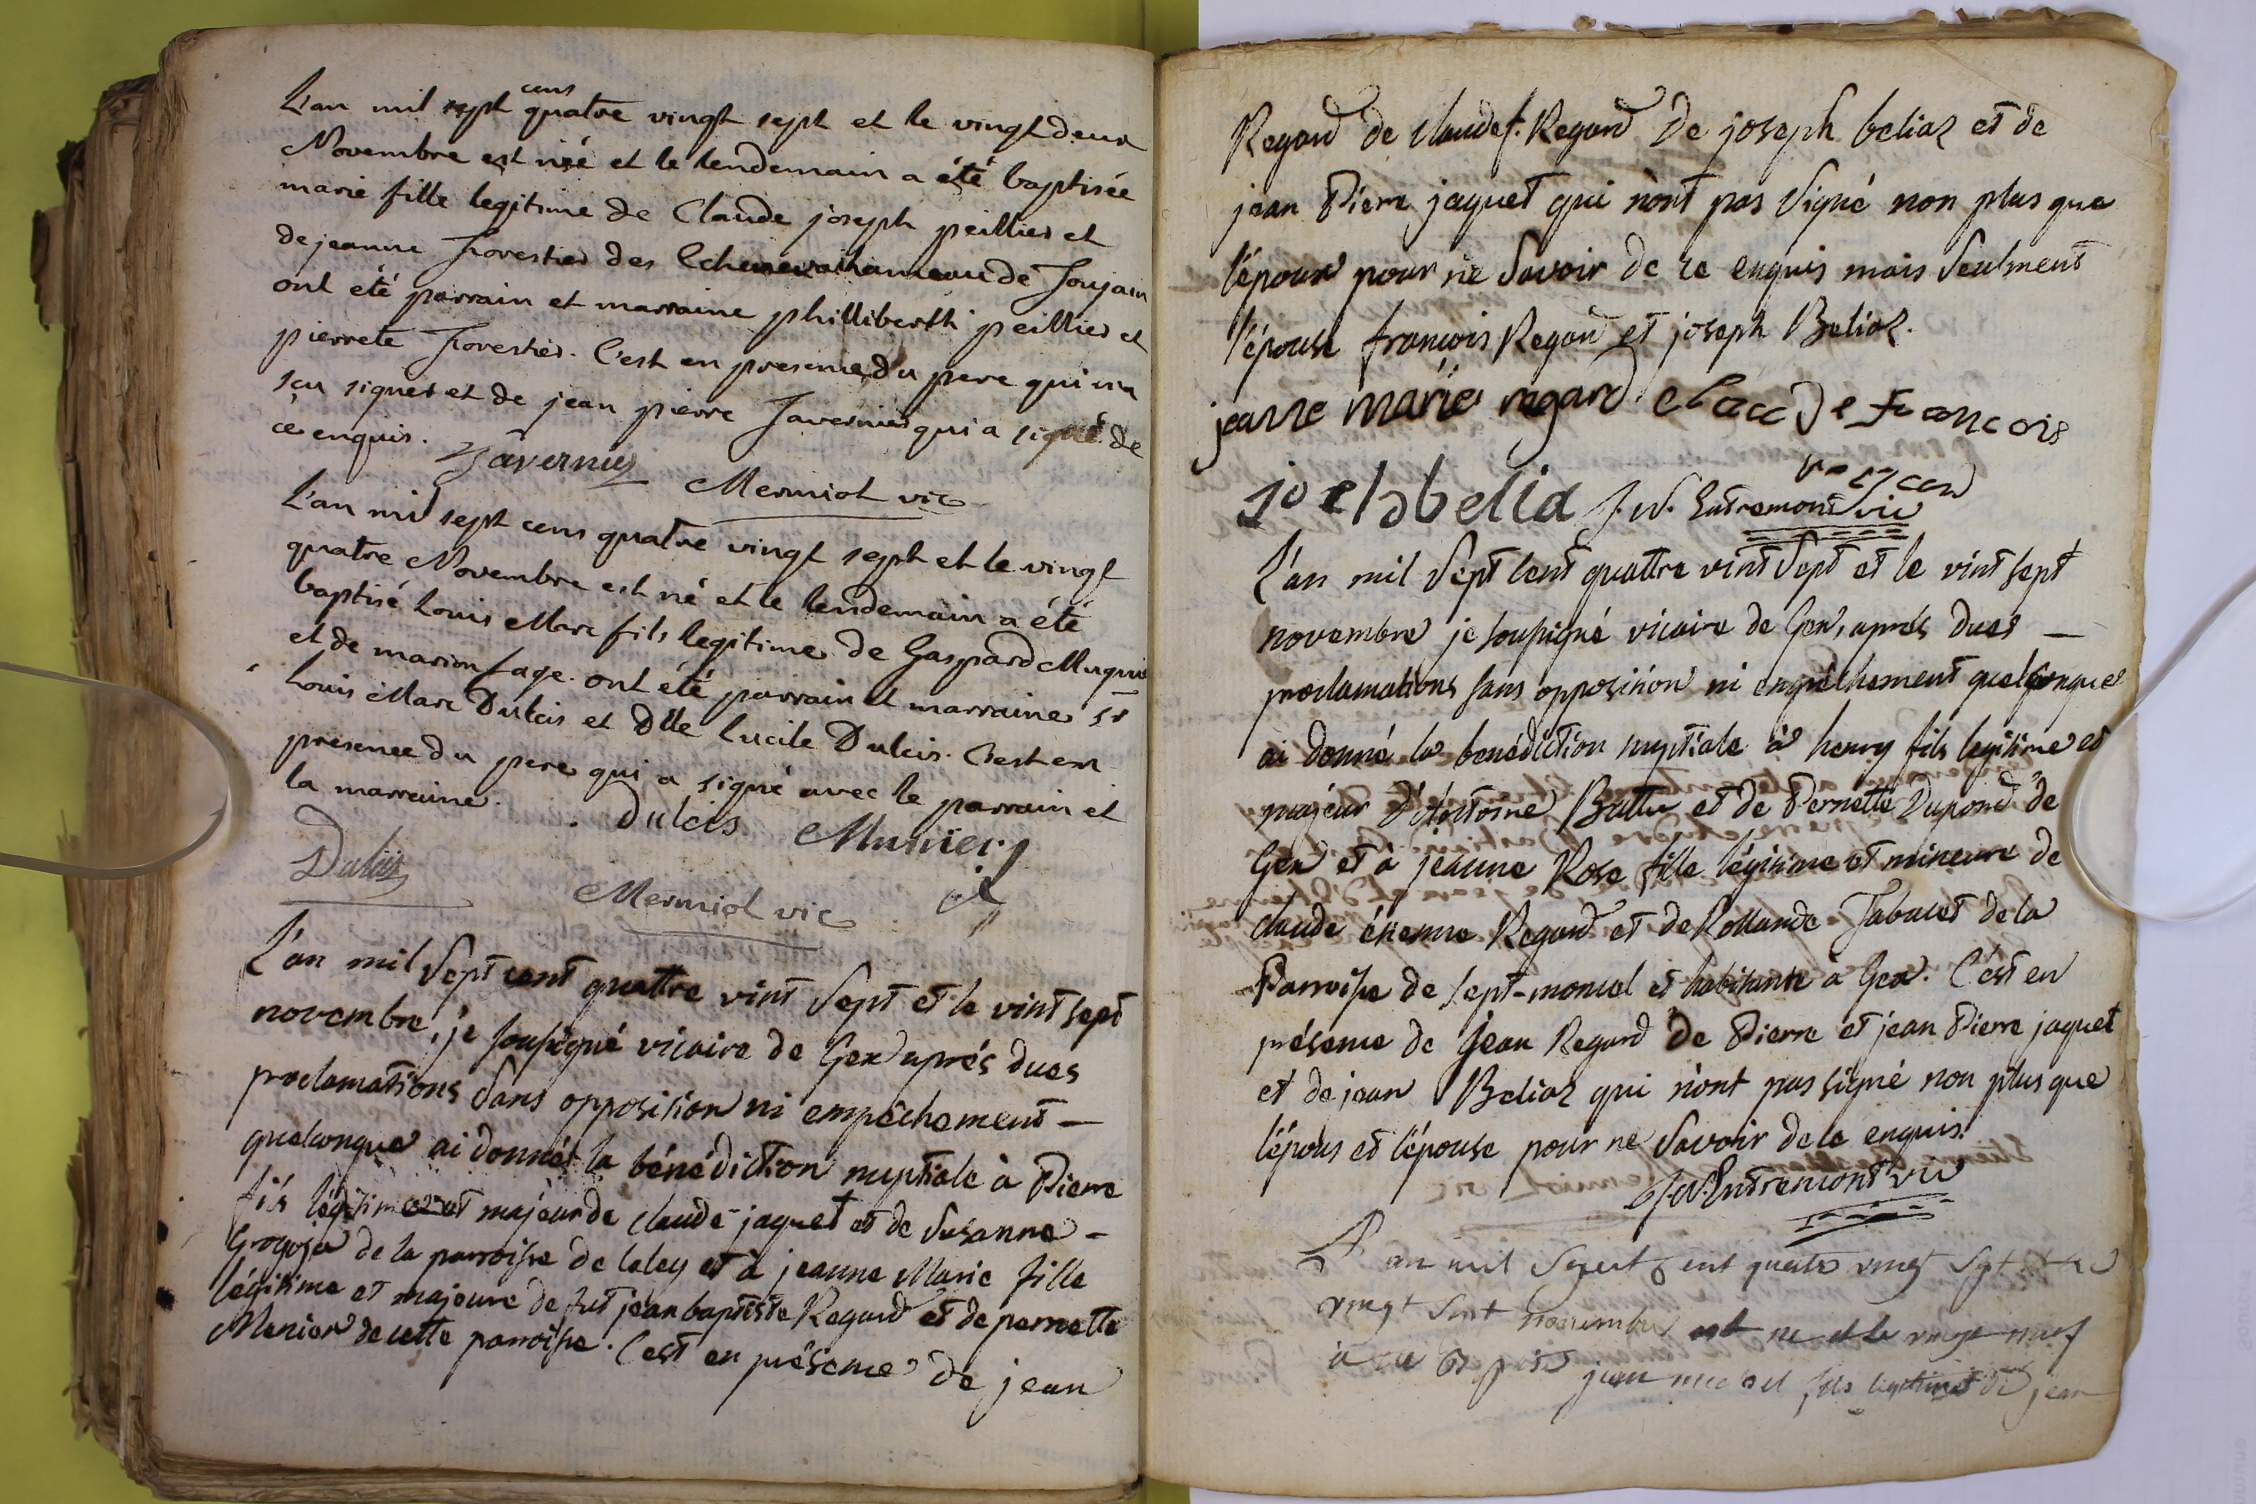 L'an mil sept cens quatre vingt sept et le vingt deux
Novembre est née et le lendemain a été baptisée
marie fille legitime de Claude joseph peillier et
de jeanne Forestier des hameau de
ont été parrain et marraine philliberth peillier et
pierrete Forestier. C'est en presence du pere qui n'a
sçu signer et de jean pierre Tavernier qui a signé de
ce enquis. Tavernier Mermiol vic
L'an mil sept cens quatre vingt sept et le vingt
quatre Novembre est né et le lendemain a été
baptisé Louis Marc fils legitime de Gaspard
et de marion fage. ont été parrain et marraine sr
Louis Marc Dulcis et Dlle Lucile Dulcis. C'est en
presence du pere qui a signé avec le parrain et
la marraine. Dulcis Munier
Dulcis Mermiol vic
L'an mil sept cent quattre vint sept et le vint sept
novembre, je soussigné vicaire de Gex après dues
proclamations sans opposition ni empêchement —
quelconque ai donné la bénédiction nuptiale à Pierre
fils légitime et majeur de claude jaquet et de Susanne -
Grosgojea de la parroisse de leley et à jeanne Marie fille
légitime et majeure de fut jean baptiste Regard et de pernette
Menier de cette parroisse. C'est en présence de jean
Regard de claude f. Regard de joseph beliaz et de
jean Pierre jaquet qui n'ont pas signé non plus que
l'époux pour ne savoir de ce enquis mais seulment
l'épouse françois Regard et joseph Beliaz.
jeanne marie regard claude François
regard
joseph belia J. W. Entremont vic
L'an mil sept cent quattre vint sept et le vint sept
novembre je soussigné vicaire de Gex, après dues —
proclamations sans opposition ni empêchement quelconque
ai donné la bénédiction nuptiale à henry fils legitime et
majeur d'Antoine Battu et de Pernette Dupond de
Gex et à jeanne Rose fille légitime et mineure de
claude étienne Regard et de Rollande Jabalet de la
Parroisse de sept-moncel et habitante à Gex. C'est en
présence de Jean Regard de Pierre et jean Pierre jaquet
et de jean Beliaz qui n'ont pas signé non plus que
l'époux et l'épouse pour ne savoir de ce enquis.
J.W. Entremont vic
L'an mil sept cent quatre vingt sept et le
vingt sept novembre est né et le vingt neuf
jean fils legitime de jean